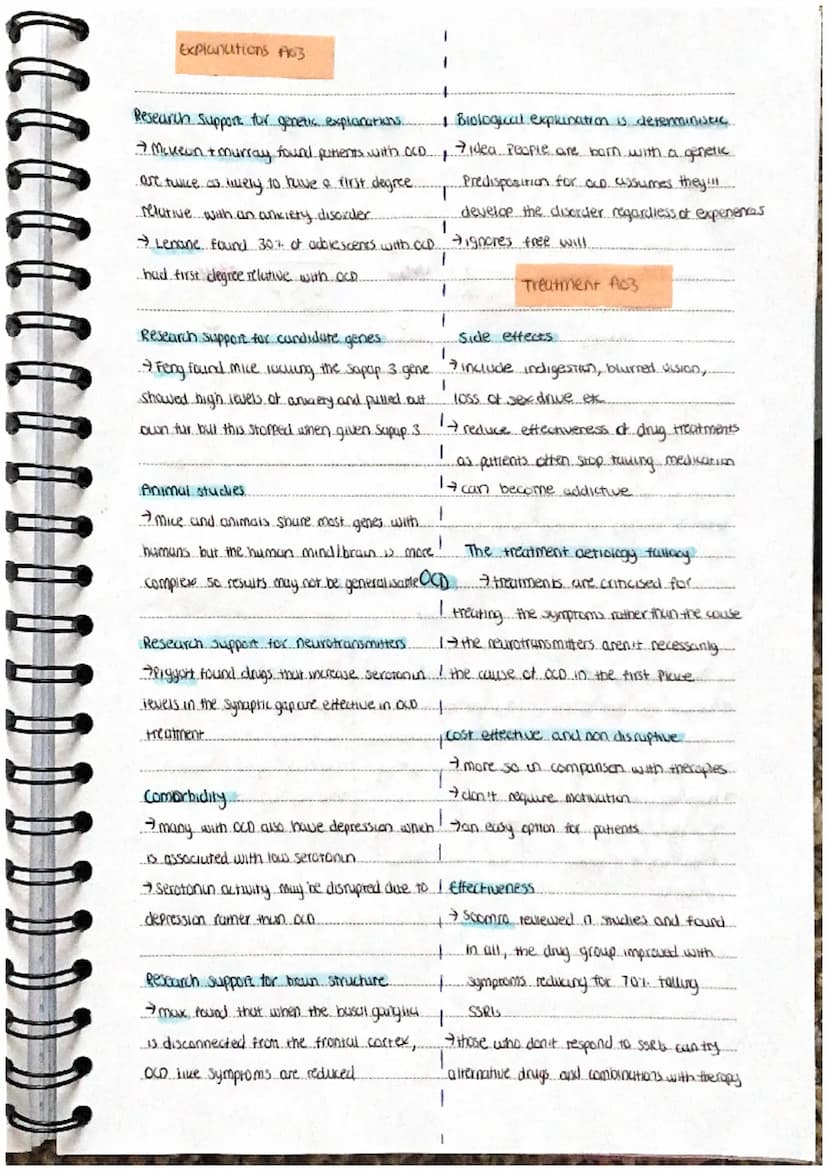 Explanations AO3
Research Support for genetic explanations
→ McKeon + murray found patients with OCD
are twice as likely to have a first degree
relative with an anxiety disorder
→ Lenane found 30% of adolescents with OCD
had first degree relative with OCD
Research support for candidate genes
→ Feng found mice lacking the Sapap 3 gene
showed high levels of anxiety and pulled out
own fur but this stopped when given Sapap 3
Animal studies
→ Mice and animals share most genes with
humans but the human mind/brain is more
complex so results may not be generalisable
OCD
Research support for neurotransmitters
→ Piggott found drugs that increase serotonin
levels in the synaptic gap are effective in OCD
treatment
Comorbidity
→ many with OCD also have depression which
is associated with low serotonin
→ Serotonin activity may be disrupted due to
depression rather than OCD
Research support for brain structure
→ max found that when the basal ganglia
is disconnected from the frontal cortex,
OCD like symptoms are reduced
Biological explanation is deterministic
→ idea people are born with a genetic
Predisposition for OCD assumes they'll
develop the disorder regardless of experiences
→ ignores free will
Treatment AO3
Side effects
→ include indigestion, blurred vision,
loss of sex drive etc
→ reduce effectiveness of drug treatments
as patients often stop taking medication
→ can become addictive
The treatment aetiology fallacy
→ treatments are criticised for
treating the symptoms rather than the cause
→ the neurotransmitters aren't necessarily
the cause of OCD in the first place
Cost effective and non disruptive
→ more so in comparison with therapies
→ don't require motivation
→ an easy option for patients
Effectiveness
→ Soomro reviewed 17 studies and found
in all, the drug group improved with
symptoms reducing for 70% taking
SSRIs
→ those who don't respond to SSRIs can try
alternative drugs and combinations with therapy